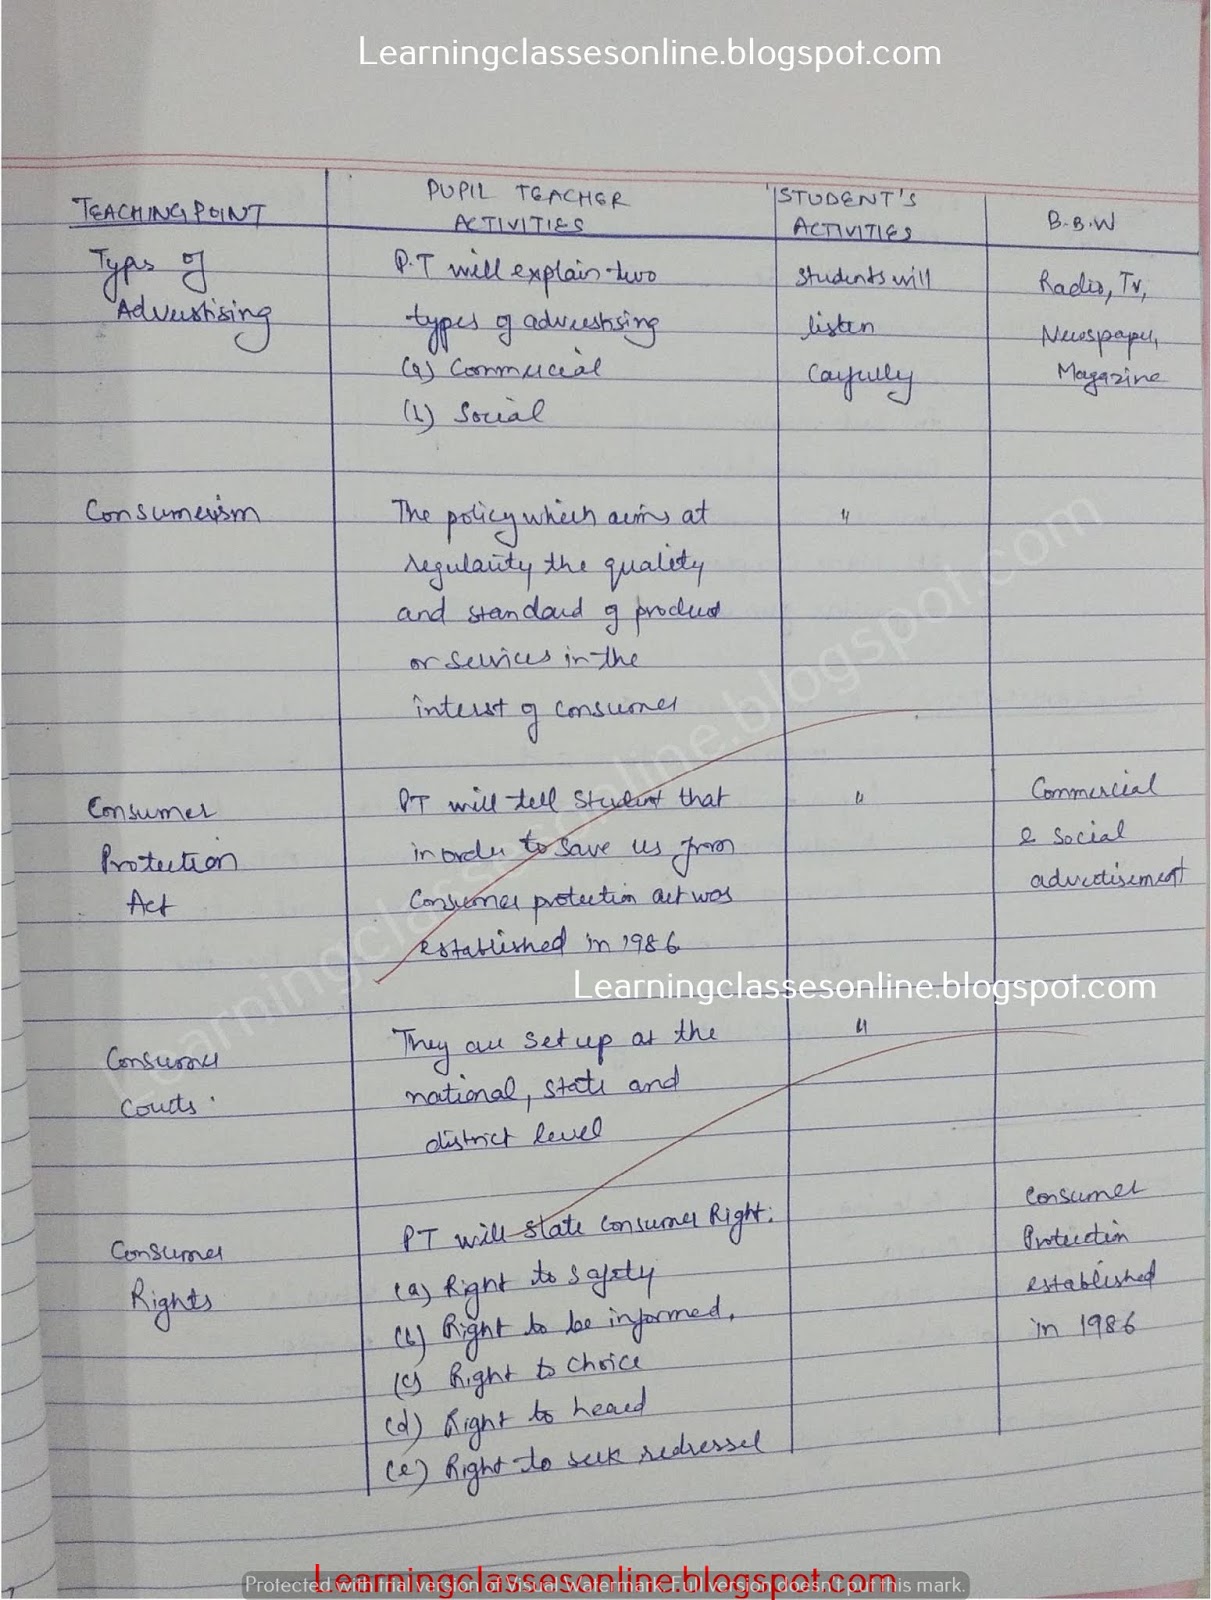 Learningclassesonline.blogspot.com
TEACHING POINT
PUPIL TEACHER
ACTIVITIES
STUDENT'S
ACTIVITIES
B.B.W
Types of
Advertising
P.T will explain two
types of advertising
(a) Commercial
(b) Social
Students will
listen
Carfully
Radio, Tv,
Newspaper,
Magazine
Consumerism
The policy which aims at
regularity the quality
and standard of product
or services in the
interst of consumer
"
Consumer
Protection
Act
PT will tell student that
in order to save us from
Consumer protection act was
established in 1986
"
Commercial
& Social
advertisement
Learningclassesonline.blogspot.com
Consumer
Courts.
They are set up at the
national, state and
district level
"
Consumer
Rights
PT will state Consumer Right:
(a) Right to safety
(b) Right to be informed.
(c) Right to choice
(d) Right to heard
(e) Right to seek redressel
Consumer
Protection
established
in 1986
Learningclassesonline.blogspot.com
Learningclassesonline.blogspot.com
Protected with trial version of Visual Watermark. Full version doesn't put this mark.